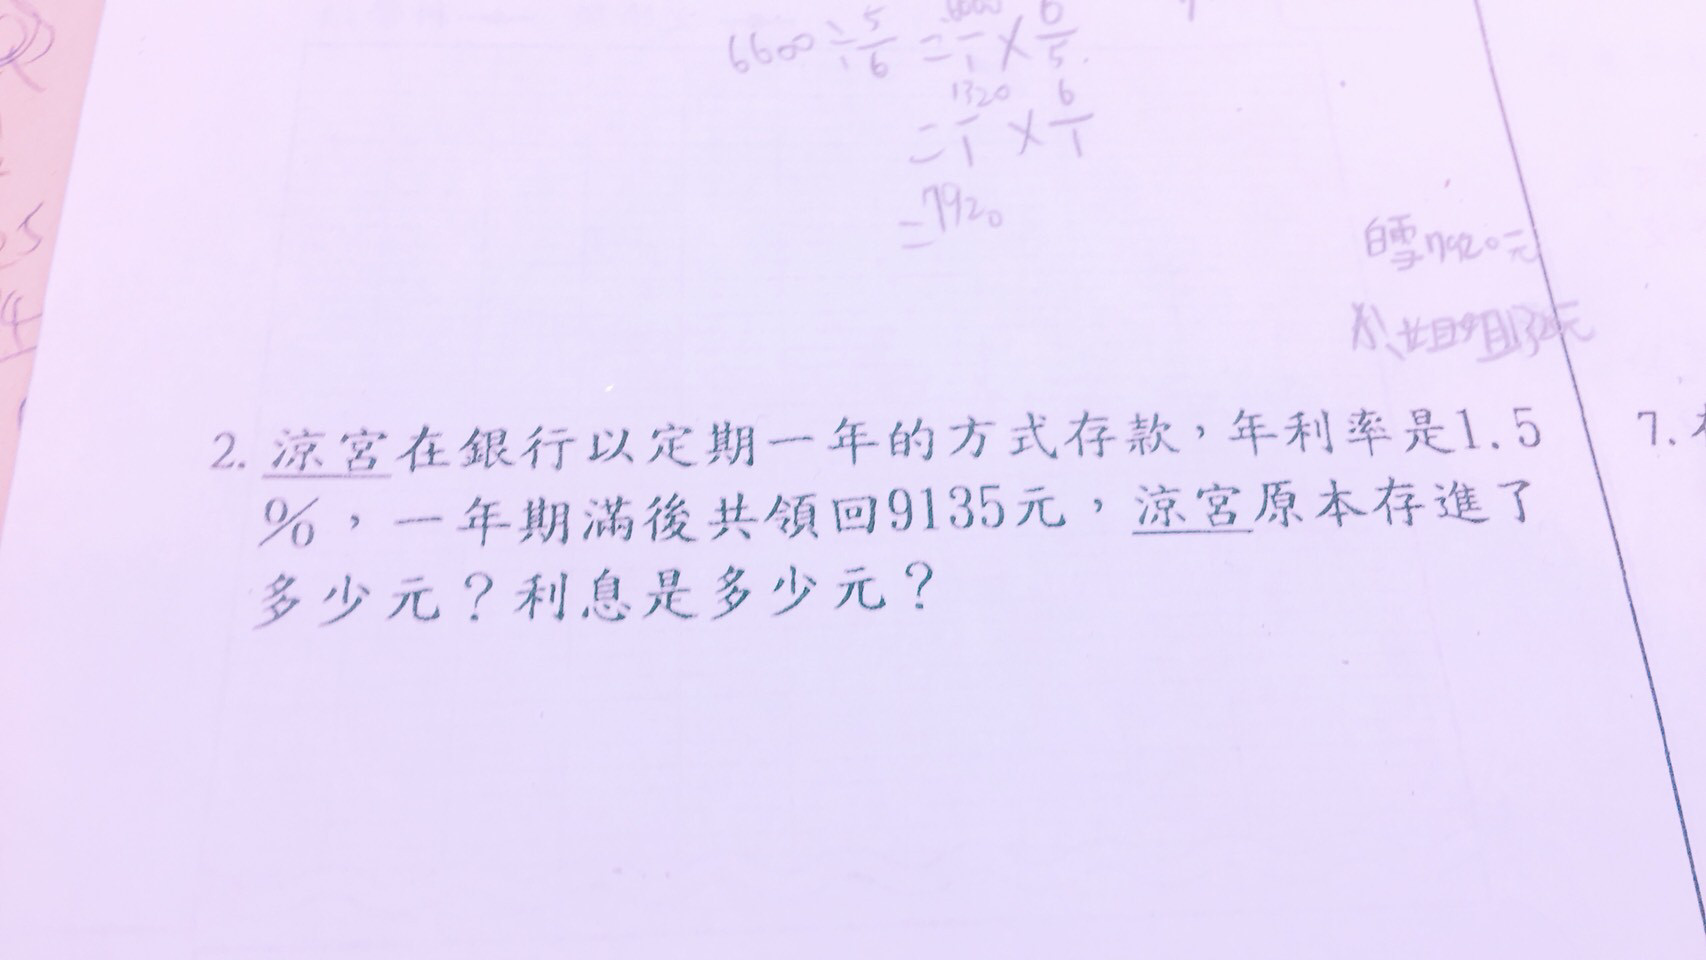 6600÷5/6=6600/1×6/5
=1320/1×6/1
=7920
白雪7920元
2. 涼宮在銀行以定期一年的方式存款，年利率是1.5
%，一年期滿後共領回9135元，涼宮原本存進了
多少元？利息是多少元？
7.